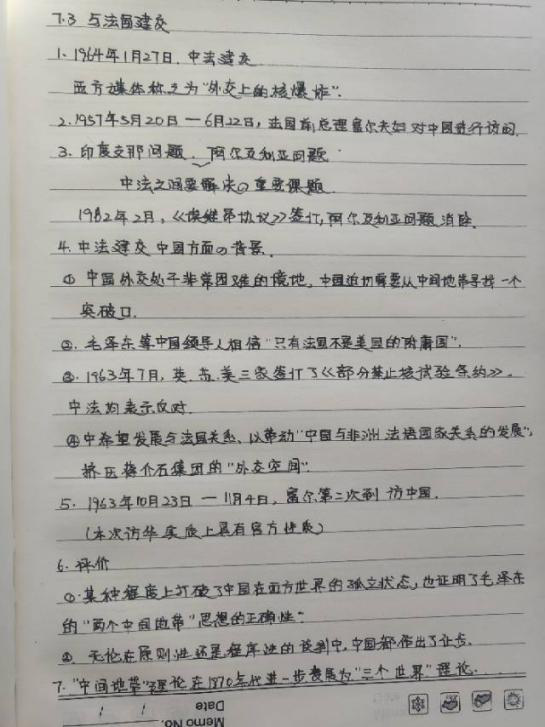 7.3 与法国建交
1. 1964年1月27日. 中法建交
西方媒体称之为"外交上的核爆炸".
2. 1957年5月20日 — 6月22日, 法国前总理富尔夫妇对中国进行访问.
3. 印度支那问题. 阿尔及利亚问题
中法之间要解决の重要课题.
1982年2月, 《埃维昂协议》签订, 阿尔及利亚问题消除.
4. 中法建交 中国方面の背景.
① 中国外交处于非常困难的境地, 中国迫切需要从中间地带寻找一个
突破口.
②. 毛泽东等中国领导人相信"只有法国不是美国的附庸国".
③. 1963年7月, 英. 苏. 美三家签订了《部分禁止核试验条约》.
中法均表示反对.
④中希望发展与法国关系、以带动"中国与非洲 法语国家关系的发展",
挤压蒋介石集团的"外交空间".
5. 1963年10月23日 — 11月4日, 富尔第二次到访中国.
(本次访华实质上具有官方性质)
6. 评价
①. 某种程度上打破了中国在西方世界的孤立状态, 也证明了毛泽东
的"两个中间地带"思想的正确性.
②. 无论在原则性还是程序性的谈判中, 中国都作出了让步.
7. "中间地带"理论在1970年代进一步发展为"三个世界"理论.
Memo No.
Date / /